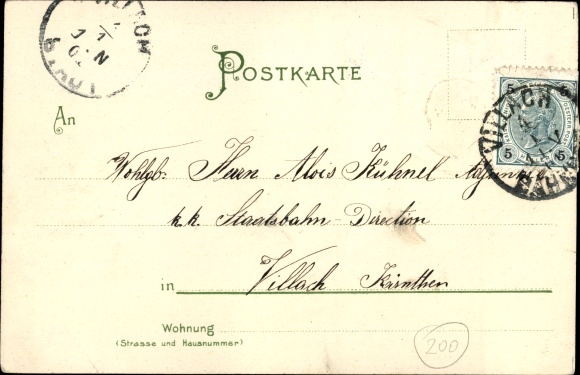 POSTKARTE
An
Wohlgb: Herrn Alois Kühnel
k.k. Staatsbahn-Direction
in Villach Kärnthen
Wohnung
(Strasse und Hausnummer)
200
5 5
5 5
VILLACH
BAHN
VILLACH